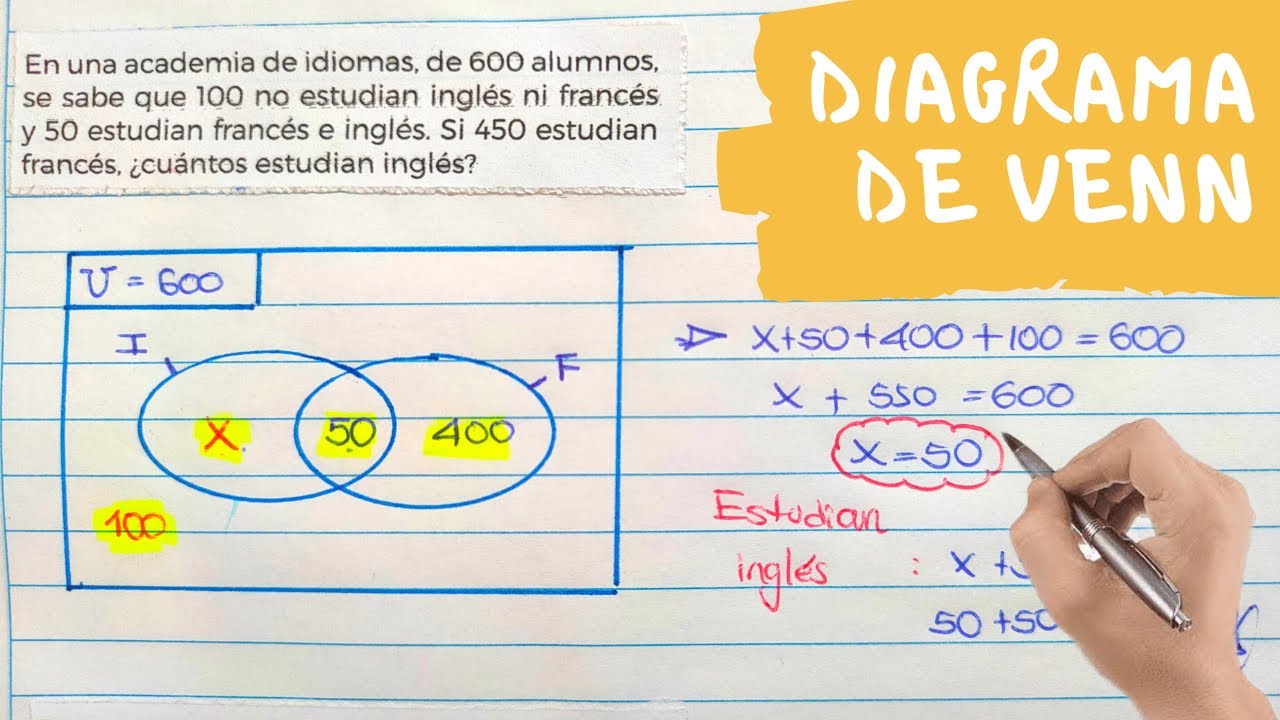 En una academia de idiomas, de 600 alumnos,
se sabe que 100 no estudian inglés ni francés
y 50 estudian francés e inglés. Si 450 estudian
francés, ¿cuántos estudian inglés?
DIAGRAMA
DE VENN
U = 600
I
F
X
50
400
100
x+50+400+100=600
x + 550 = 600
x=50
Estudian
inglés : x +
50 +50